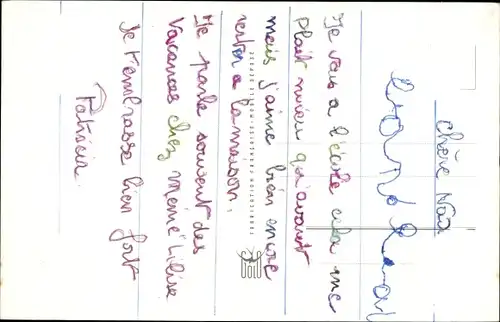 chère Nad
Je vais a l'école cela me
plait mieu qu'avant
mais j'aime bien encore
rester a la maison.
Je parle souvent des
Vacances chez mémé Lilise
Je t'embrasse bien fort
Patricia